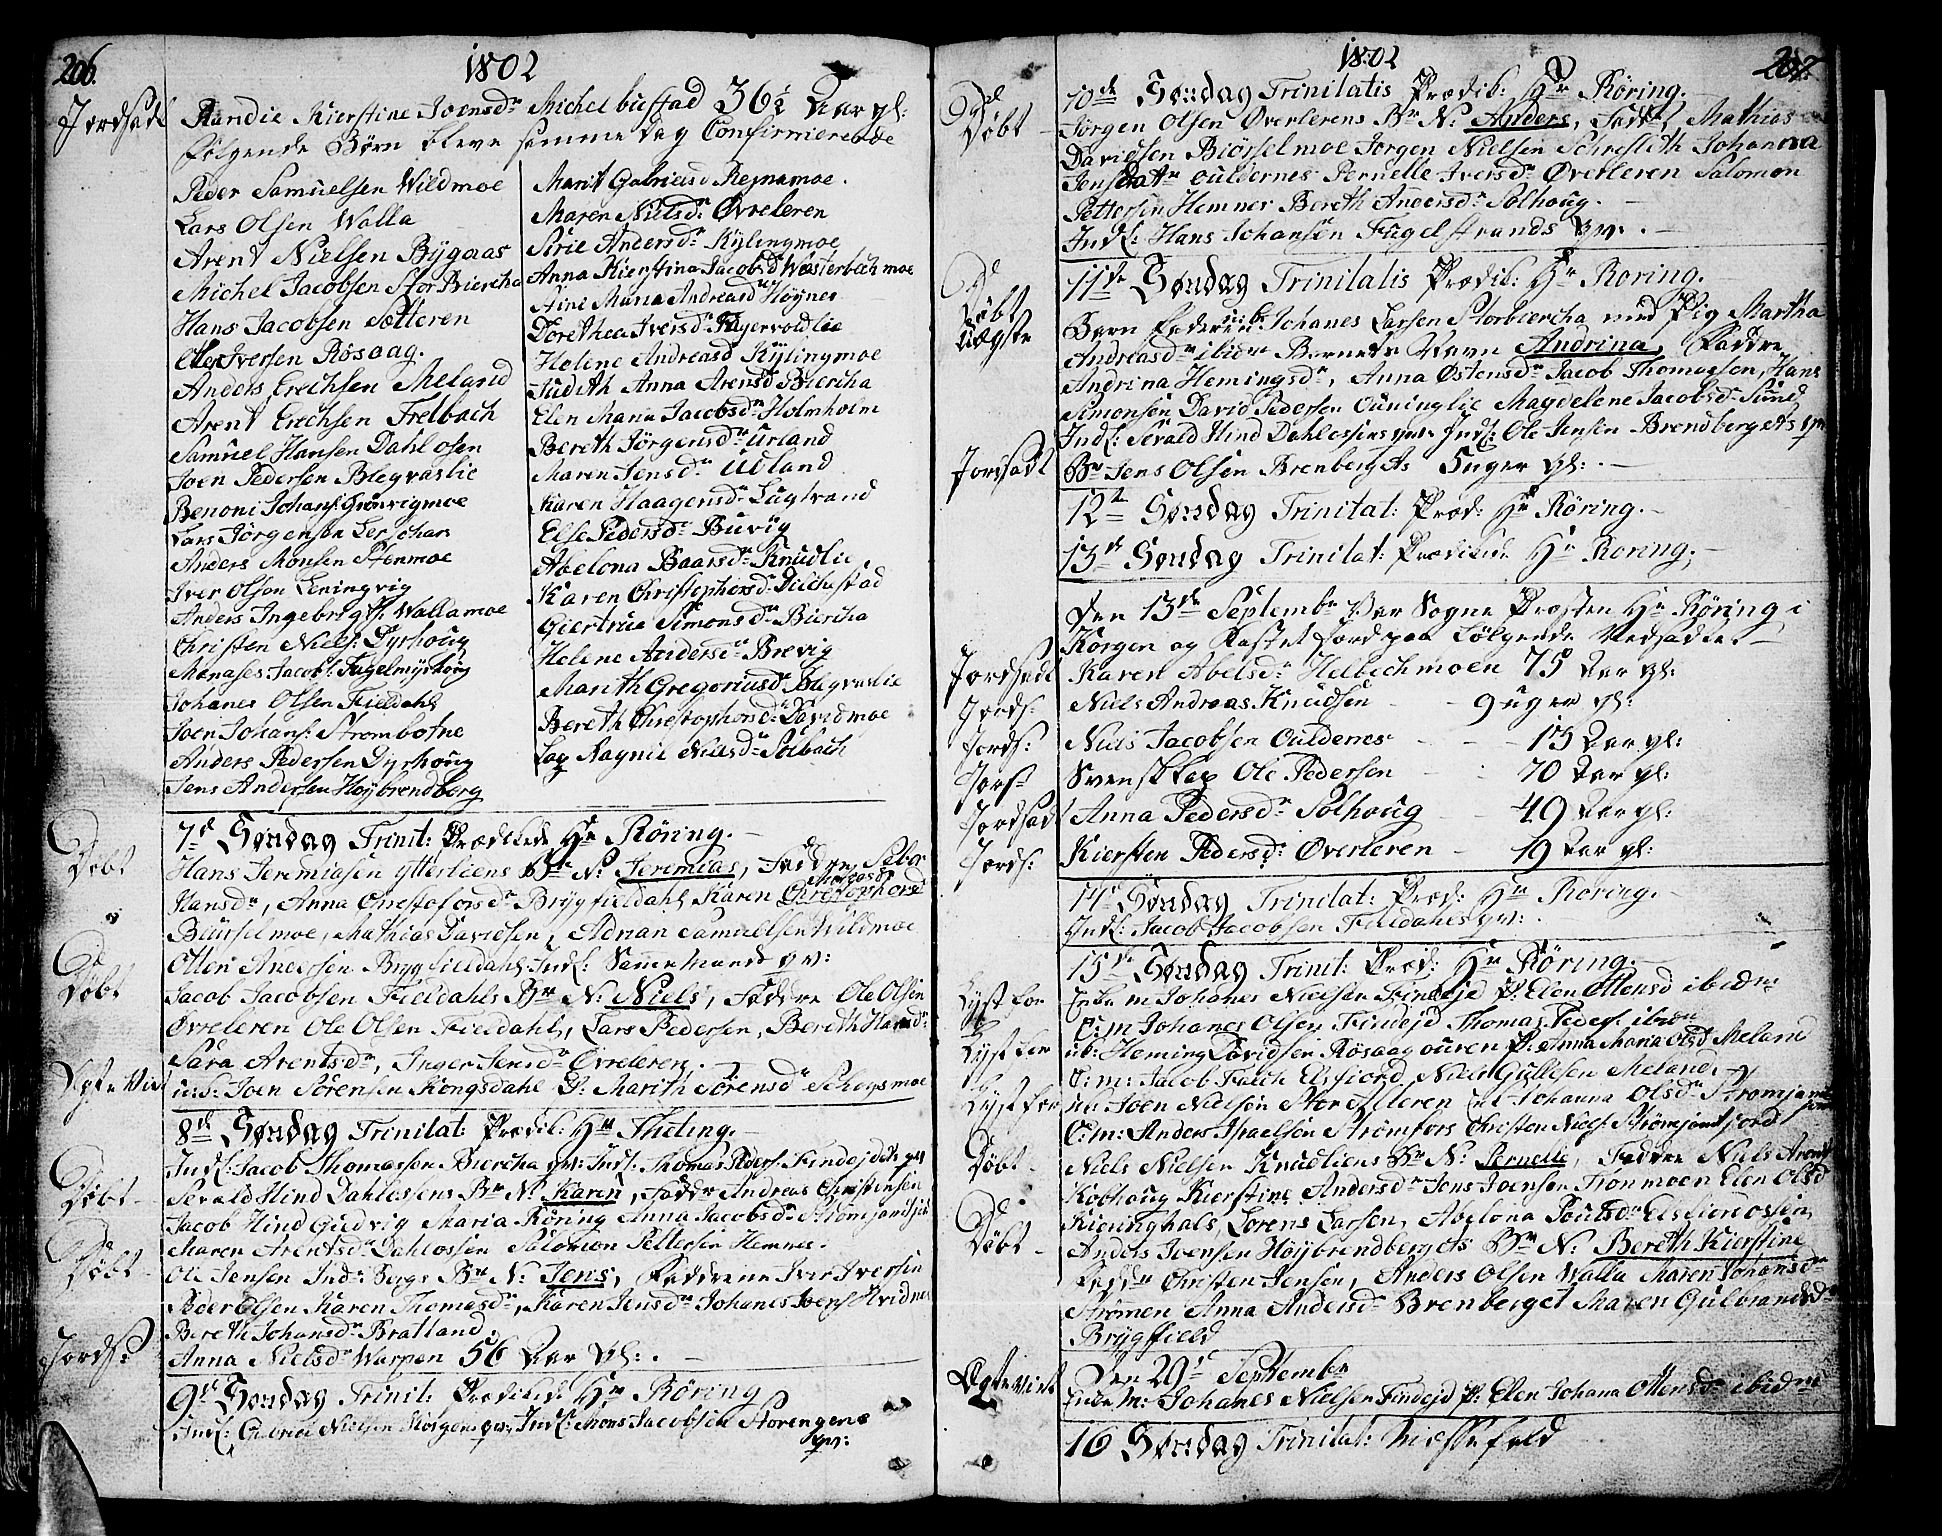 206.
1802
Jordsadt
Randie Kierstine Joensd: Michelbustad 36½ Aar gl:
følgende Børn bleve samme dag Confirmierede
Peder Samuelsen Wildmoe
Lars Olsen Walla
Arent Nielsen Bÿgaas
Michel Jacobsen StorBiercha
Hans Jacobsen Sætteren
Iversen Røsaag.
Anders Erichsen Meland
Arent Erichsen Frelbach
Samuel Hansen Dahlosen
Joen Pedersen Blegvaslie
Benoni Johans: Grönvigmoe
Lars Jörgensen Lerschars
Anders Monsen Stenmoe
Iver Olsen Leningvig
Anders Ingebrigtf. Wallamoe
Christen Niels: Dyrhoug
Manases Jacobs: Fugelmÿrhoug
Johanes Olsen Fieldahl
Joen Johans: Strombotne
Anders Pedersen Dyrhoug
Jens Andersen Höÿbrendberg
Marit Gabrielsd Regnamoe.
Maren Nielsd: Øvreleren
Sirie Andersd: Kÿlingmoe
Anna Kierstina Jacobsd Westerbechmoe
Aine Maria Andreasd Höynes
Dorethea Iversd: Fagervoldlie
Helene Andreasd Kÿlingmoe
Judith Anna Arensd Biercha
Elen Maria Jacobsd: Holmholm
Bereth Jörgensd: Urland
Maren Jensd: Udland
Karen Haagensd: Lugtvand
Else Pedersd: Buvig
Abelona Baarsd: Knudlie
Karen Christophersd: Dilchestad
Giertrue Simonsd: Biercha
Helene Andersd: Brevig
Marith Gregoriusd: Blegvaslie
Bereth Christophersd: Davidmoe
Lap Ragnil Nielsd: Solbach
Døbt
7d Søndag Trinit: Prædikede Hr Röring.
Hans Jeremiasen Ytterliens Br N: Jeremias, Faddre
Hansdr, Anna Christofersdr Brÿgfieldahl Karen Christophersd
Büüselmoe, Mathias Davidsen, Adrian Samuelsen Wildmoe
Otter Andersen Brygfieldahl. Indl: Samme Mands qv:
Døbt
Jacob Jacobsen Fieldahls Br N: Niels, Faddre Ole Olsen
Øvreleren Ole Olsen Fieldahl, Lars Pedersen, Bereth Hansd:
Sara Arentsdr, Inger Jensdr Øvreleren.
Ægte Viet
u:S: Joen Sörensen Kongsdahl P: Marith Sörensdr
8d Søndag Trinitat: Prædik: Hr Theting.
Indl: Jacob Thomassen Biercha qv: Indl: Thomas Peders: Findejdets qv
Døbt
Sevald Hind Dahlosens Br N: Karen, Faddr Andreas Christensen
Jacob Hind Gudvig Maria Röring Anna Jacobsd:
Maren Arentsdr Dahlosen Salomon Pettersen Hemnes.
Døbt
Ole Jensen Indr: Bergs Br N: Jens, Faddrene Iver Iversen
Peder Olsen Karen Thomasdr, Karen Jensdr Johanes Joens: Hvidnes
Bereth Johansdr Bratland.
Jords:
Anna Nielsdr Warpen 56 Aar gl:.
9d Søndag Trinit: Prædiked: Hr Röring
Indl: Gabriel Nielsen Storgens qv: Indl: Mons Jacobsen Storengens
qv:
1802
207.
Døbt
10de Søndag Trinitatis Prædik: Hr Röring.
Jörgen Olsen Øverlerens Br N: Anders, Faddr, Mathias
Davidsen Biörselmoe Jörgen Nielsen Johanna
Jensdattr Ouldernes Pernelle Iversdr Øverleren Salomon
Pettersen Hemner Bereth Andersdr Solhoug.
Indl: Hans Johansen Fugelstrands qv:.
11te Søndag Trinitatis Prædik: Hr Roring.
Døbt
uægte
Barnefaderen Johanes Larsen Storbiercha med Pig Martha
Andreasdr ibidm Barnets Navn Andrina, Faddre
Andrina Hemingsdr, Anna Østensdr Jacob Thomassen, Hans
Simonsen David Pedersen Ouninglie Magdelene Jacobsdr Sund
Indl: Sevald Hind Dahlossens qv: Indl: Ole Jensen Brendbergets qv
Jordsadt
Br Jens Olsen Brenbergets 5 uger gl:.
12te Søndag Trinitat: Præd: Hr Röring.
13de Søndag Trinitat: Prædiked: Hr Roring.
Den 13de Septembr Var Sogne Præsten Hr Röring i
Korgen og Kastet Jord paa følgende
Jordsadt
Karen Abelsdr Helbechmoen 75 Aar gl:
Jords:
Niels Andreas Knudsen 9 uger gl:
Jords:
Niels Jacobsen Ouldenes 13 Aar gl:
Jords:
Svensk Lap Ole Pedersen 70 Aar gl:
Jordsadt
Anna Pedersdr Solhoug 49 Aar gl:
Jords:
Kiersten Pedersd: Øverleren 19 Aar gl:
14d Søndag Trinitat: Præd: Hr Röring.
Indl: Jacob Jacobsen Fieldahls qv:.
15de Søndag Trinit: Præd: Hr Röring.
Lyst for
Enke m Johanes Nielsen Findejd P: Elen Ottensd ibidm
C:m Johanes Olsen Findejd Thomas Peders: ibidm
Lyst for
ub: Heming Davidsen Røsaagouren P: Anna Maria Olsd Meland
C:m: Jacob Falch Elsfiord, Niels Gullesen Meland.
Lyst for
ub: Joen Nielsen Stor Johanna Olsdr
C:m: Anders Israelsen Strömfors Christen Niels: Strömjamtfjord
Døbt
Niels Nielsen Knudliens Br N: Pernelle, Faddre Niels Arent
Kobhoug Kierstine Andersdr Jens Joensen Fronmoen Elen Olsd
Kieringhals, Lorens Larsen, Abelona Poulsd: Elsfiordosen
Døbt
Anders Joensen Höÿbrendbergets Br N: Bereth Kierstine
Faddr Christen Jensen, Anders Olsen Walla Maren Johansdr
Strömen Anna Andersdr Brenberget Maren Gulbrandsdr
Brÿgfield
Den 29d Septembr
Ægte Viet
Enke m: Johanes Nielsen Findejd P: Elen Johana Ottensdr ibidm
16 Søndag Trinitat: Messefald